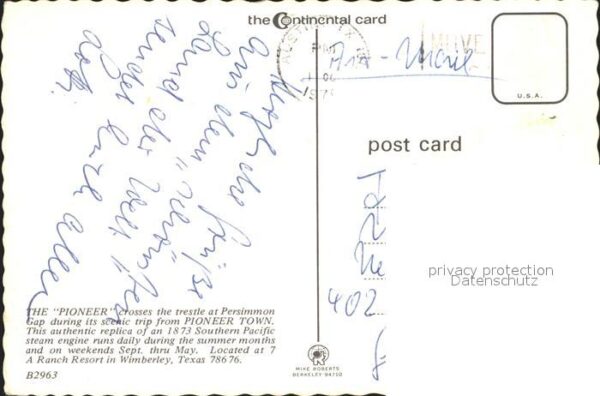 the Continental card
AUSTIN, TX
PM
OC
197
MOVE
Ria - Marie
U.S.A.
post card
Herzliche Grüße
aus dem "schönsten
Land der Welt"
sendet Euch allen
402
privacy protection
Datenschutz
THE "PIONEER" crosses the trestle at Persimmon
Gap during its scenic trip from PIONEER TOWN.
This authentic replica of an 1873 Southern Pacific
steam engine runs daily during the summer months
and on weekends Sept. thru May. Located at 7
A Ranch Resort in Wimberley, Texas 78676.
B2963
MIKE ROBERTS
BERKELEY 94710